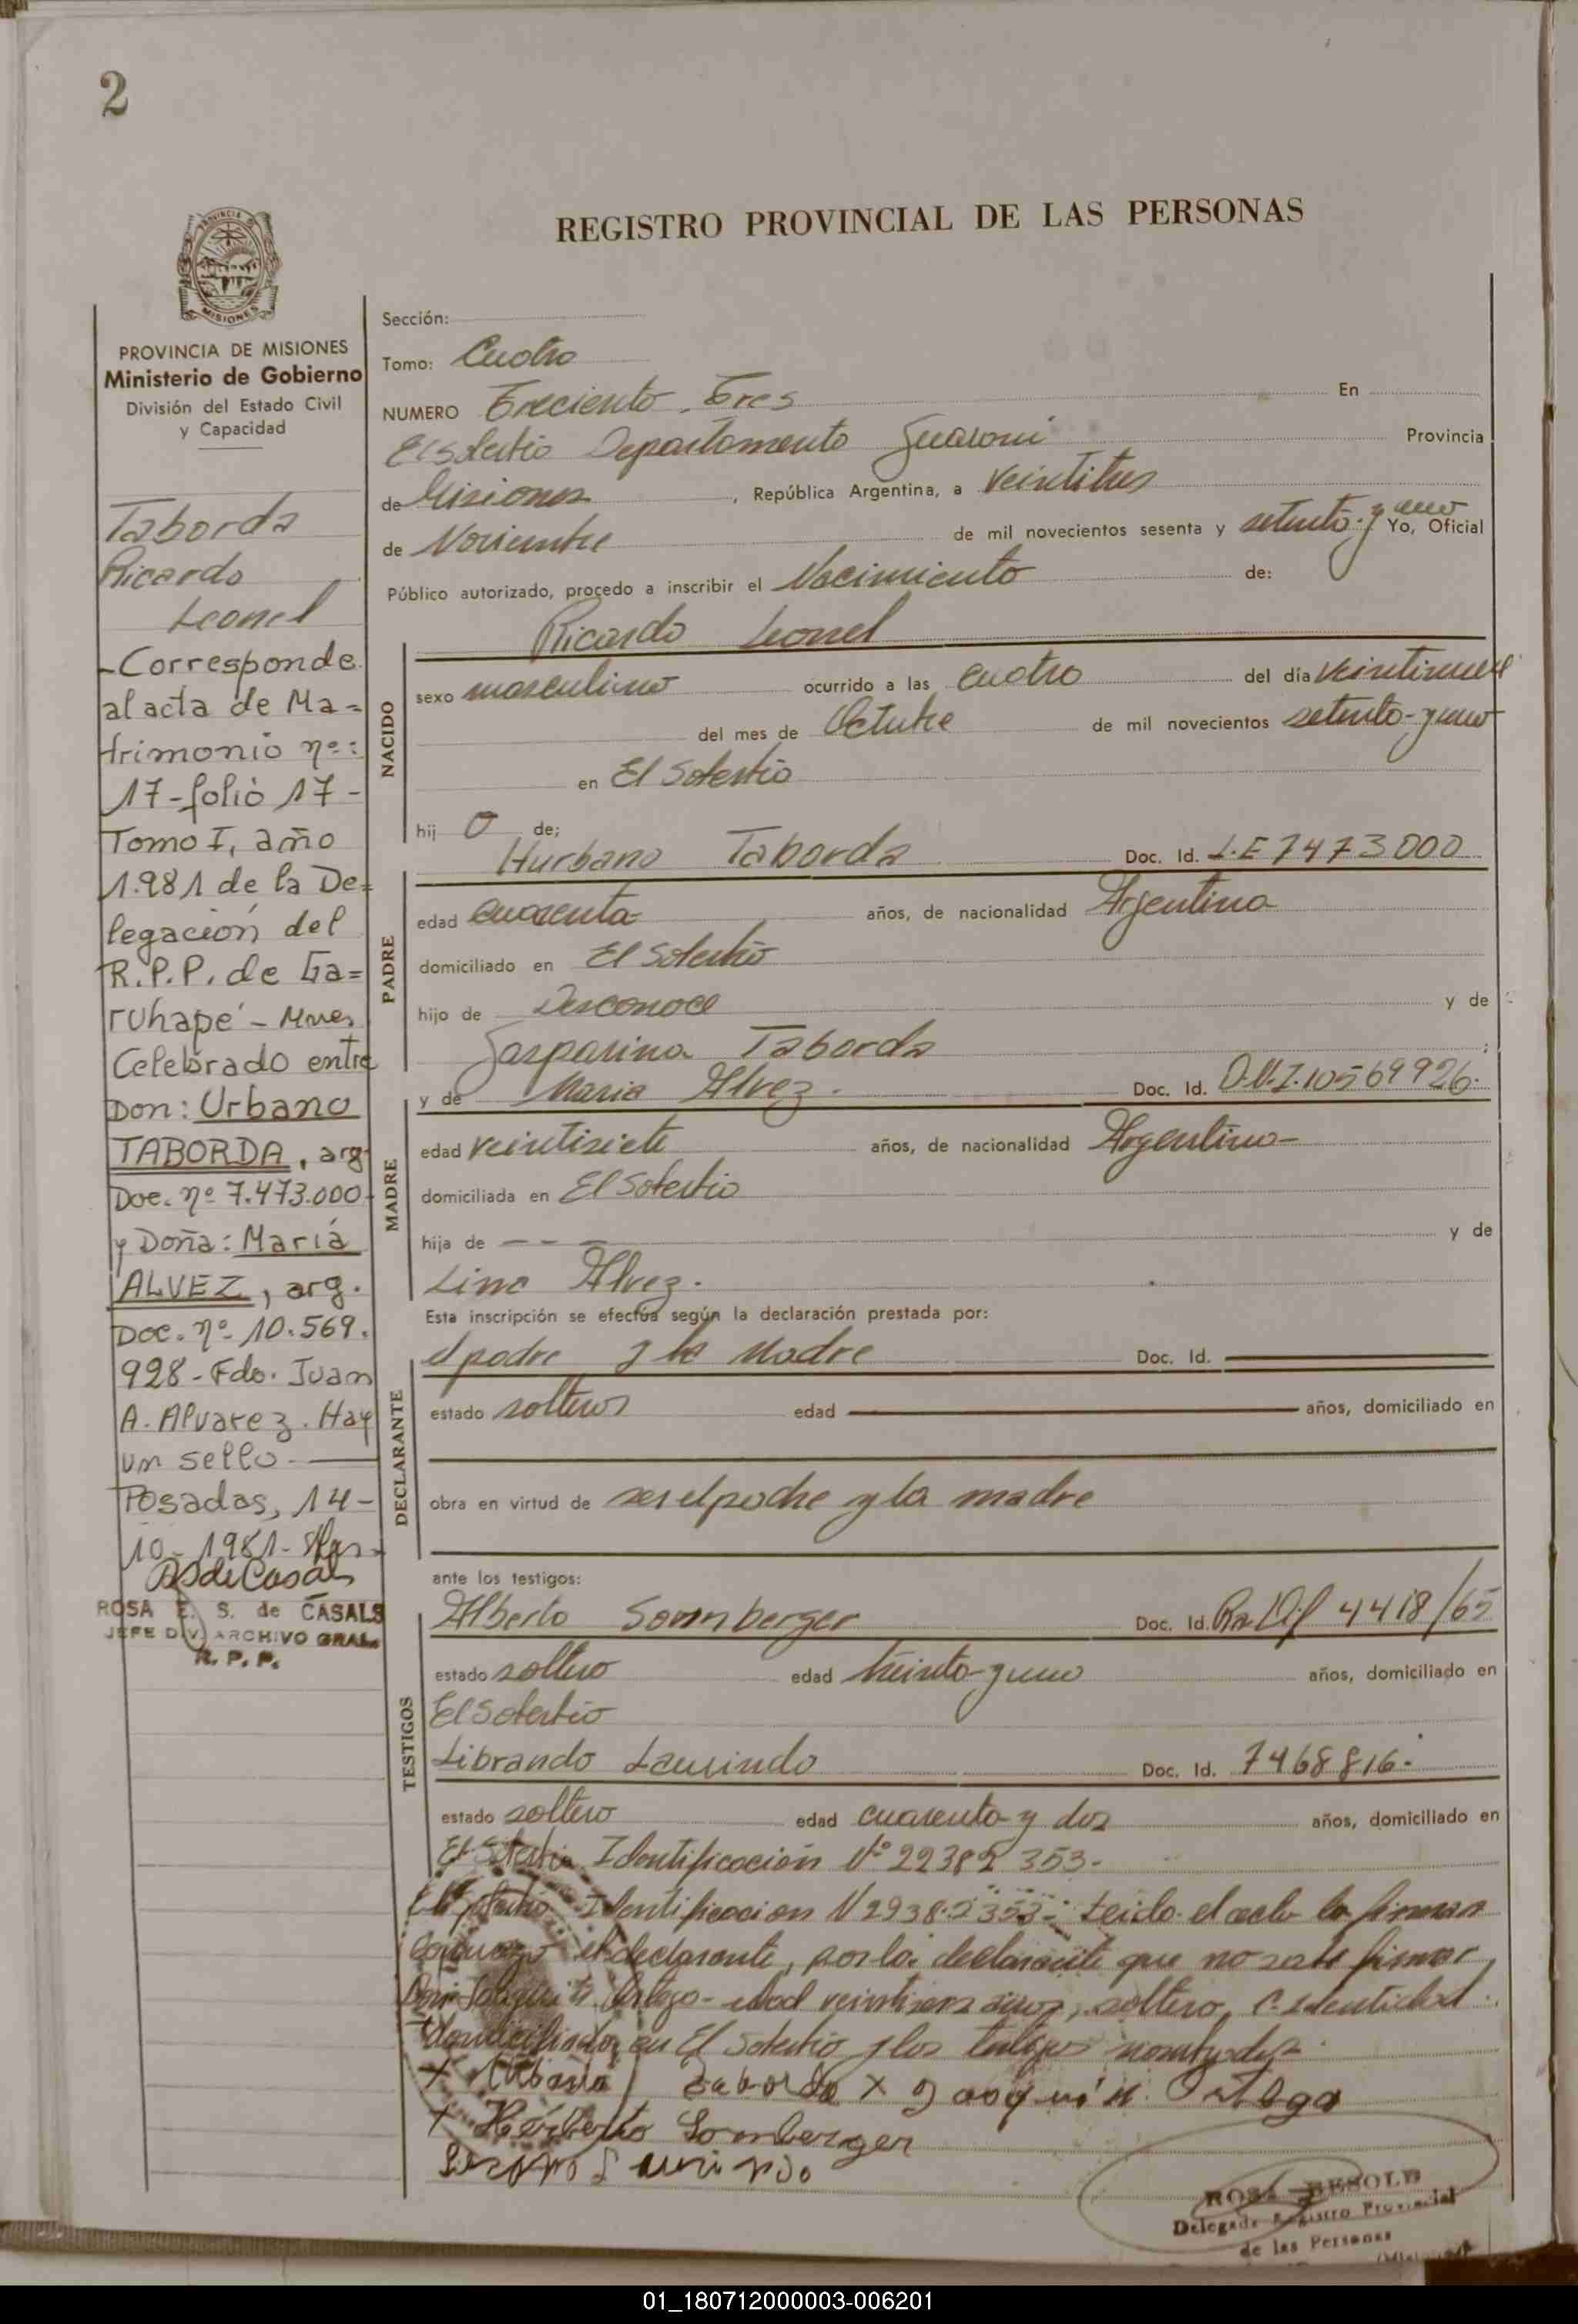 2
REGISTRO PROVINCIAL DE LAS PERSONAS
MISIONES
PROVINCIA DE MISIONES
Ministerio de Gobierno
División del Estado Civil
y Capacidad
Taborda
Ricardo
Leonel
-Corresponde
al acta de Ma=
trimonio nº:
17-folio 17-
Tomo I, año
1.981 de la De=
legación del
R.P.P. de Ga=
ruhapé - Mnes
Celebrado entre
Don: Urbano
TABORDA, arg.
Doc. nº 7.473.000-
y Doña: María
ALVEZ, arg.
Doc. nº 10.569.
928-Fdo. Juan
A. Alvarez. Hay
un sello-
Posadas, 14-
10-1981-
ROSA E. S. de CASALS
JEFE DIV. ARCHIVO GRAL.
R. P. P.
Sección:
Tomo: Cuatro
NUMERO Treciento Tres En
El Soberbio Departamento Guarani Provincia
de Misiones, República Argentina, a veintitres
de Noviembre de mil novecientos sesenta y setenta y uno Yo, Oficial
Público autorizado, procedo a inscribir el Nacimiento de:
Ricardo Leonel
NACIDO
sexo masculino ocurrido a las cuatro del día veintinueve
del mes de Octubre de mil novecientos setenta y uno
en El Soberbio
hij o de;
Hurbano Taborda Doc. Id. L.E 7473000
PADRE
edad cuarenta años, de nacionalidad Argentina
domiciliado en El Soberbio
hijo de Desconoce y de
Gasparina Taborda ;
y de Maria Alvez. Doc. Id. D.N.I. 10569926.
MADRE
edad veintisiete años, de nacionalidad Argentina
domiciliada en El Soberbio
hija de - - - y de
Lino Alvez.
Esta inscripción se efectúa según la declaración prestada por:
el padre y la Madre Doc. Id.
DECLARANTE
estado solteros edad años, domiciliado en
obra en virtud de ser el padre y la madre
ante los testigos:
TESTIGOS
Alberto Sonnberger Doc. Id. 4418/65
estado soltero edad treinta y uno años, domiciliado en
El Soberbio
Librando Laurindo Doc. Id. 7468816.
estado soltero edad cuarenta y dos años, domiciliado en
El Soberbio Identificación Nº 22382 353-
El Soberbio Identificacion N 2938.2353- Leida el acta la firman
conmigo el declarante, por la declarante que no sabe firmar
Ortega - edad veintiseis años, soltero,
domiciliado en El Soberbio y los testigos nombrados.
x Urbano Taborda x Joaquín Ortega
x Herberto Sonnberger
Laurindo
ROSA BESOLD
Delegada Registro Provincial
de las Personas
01_180712000003-006201